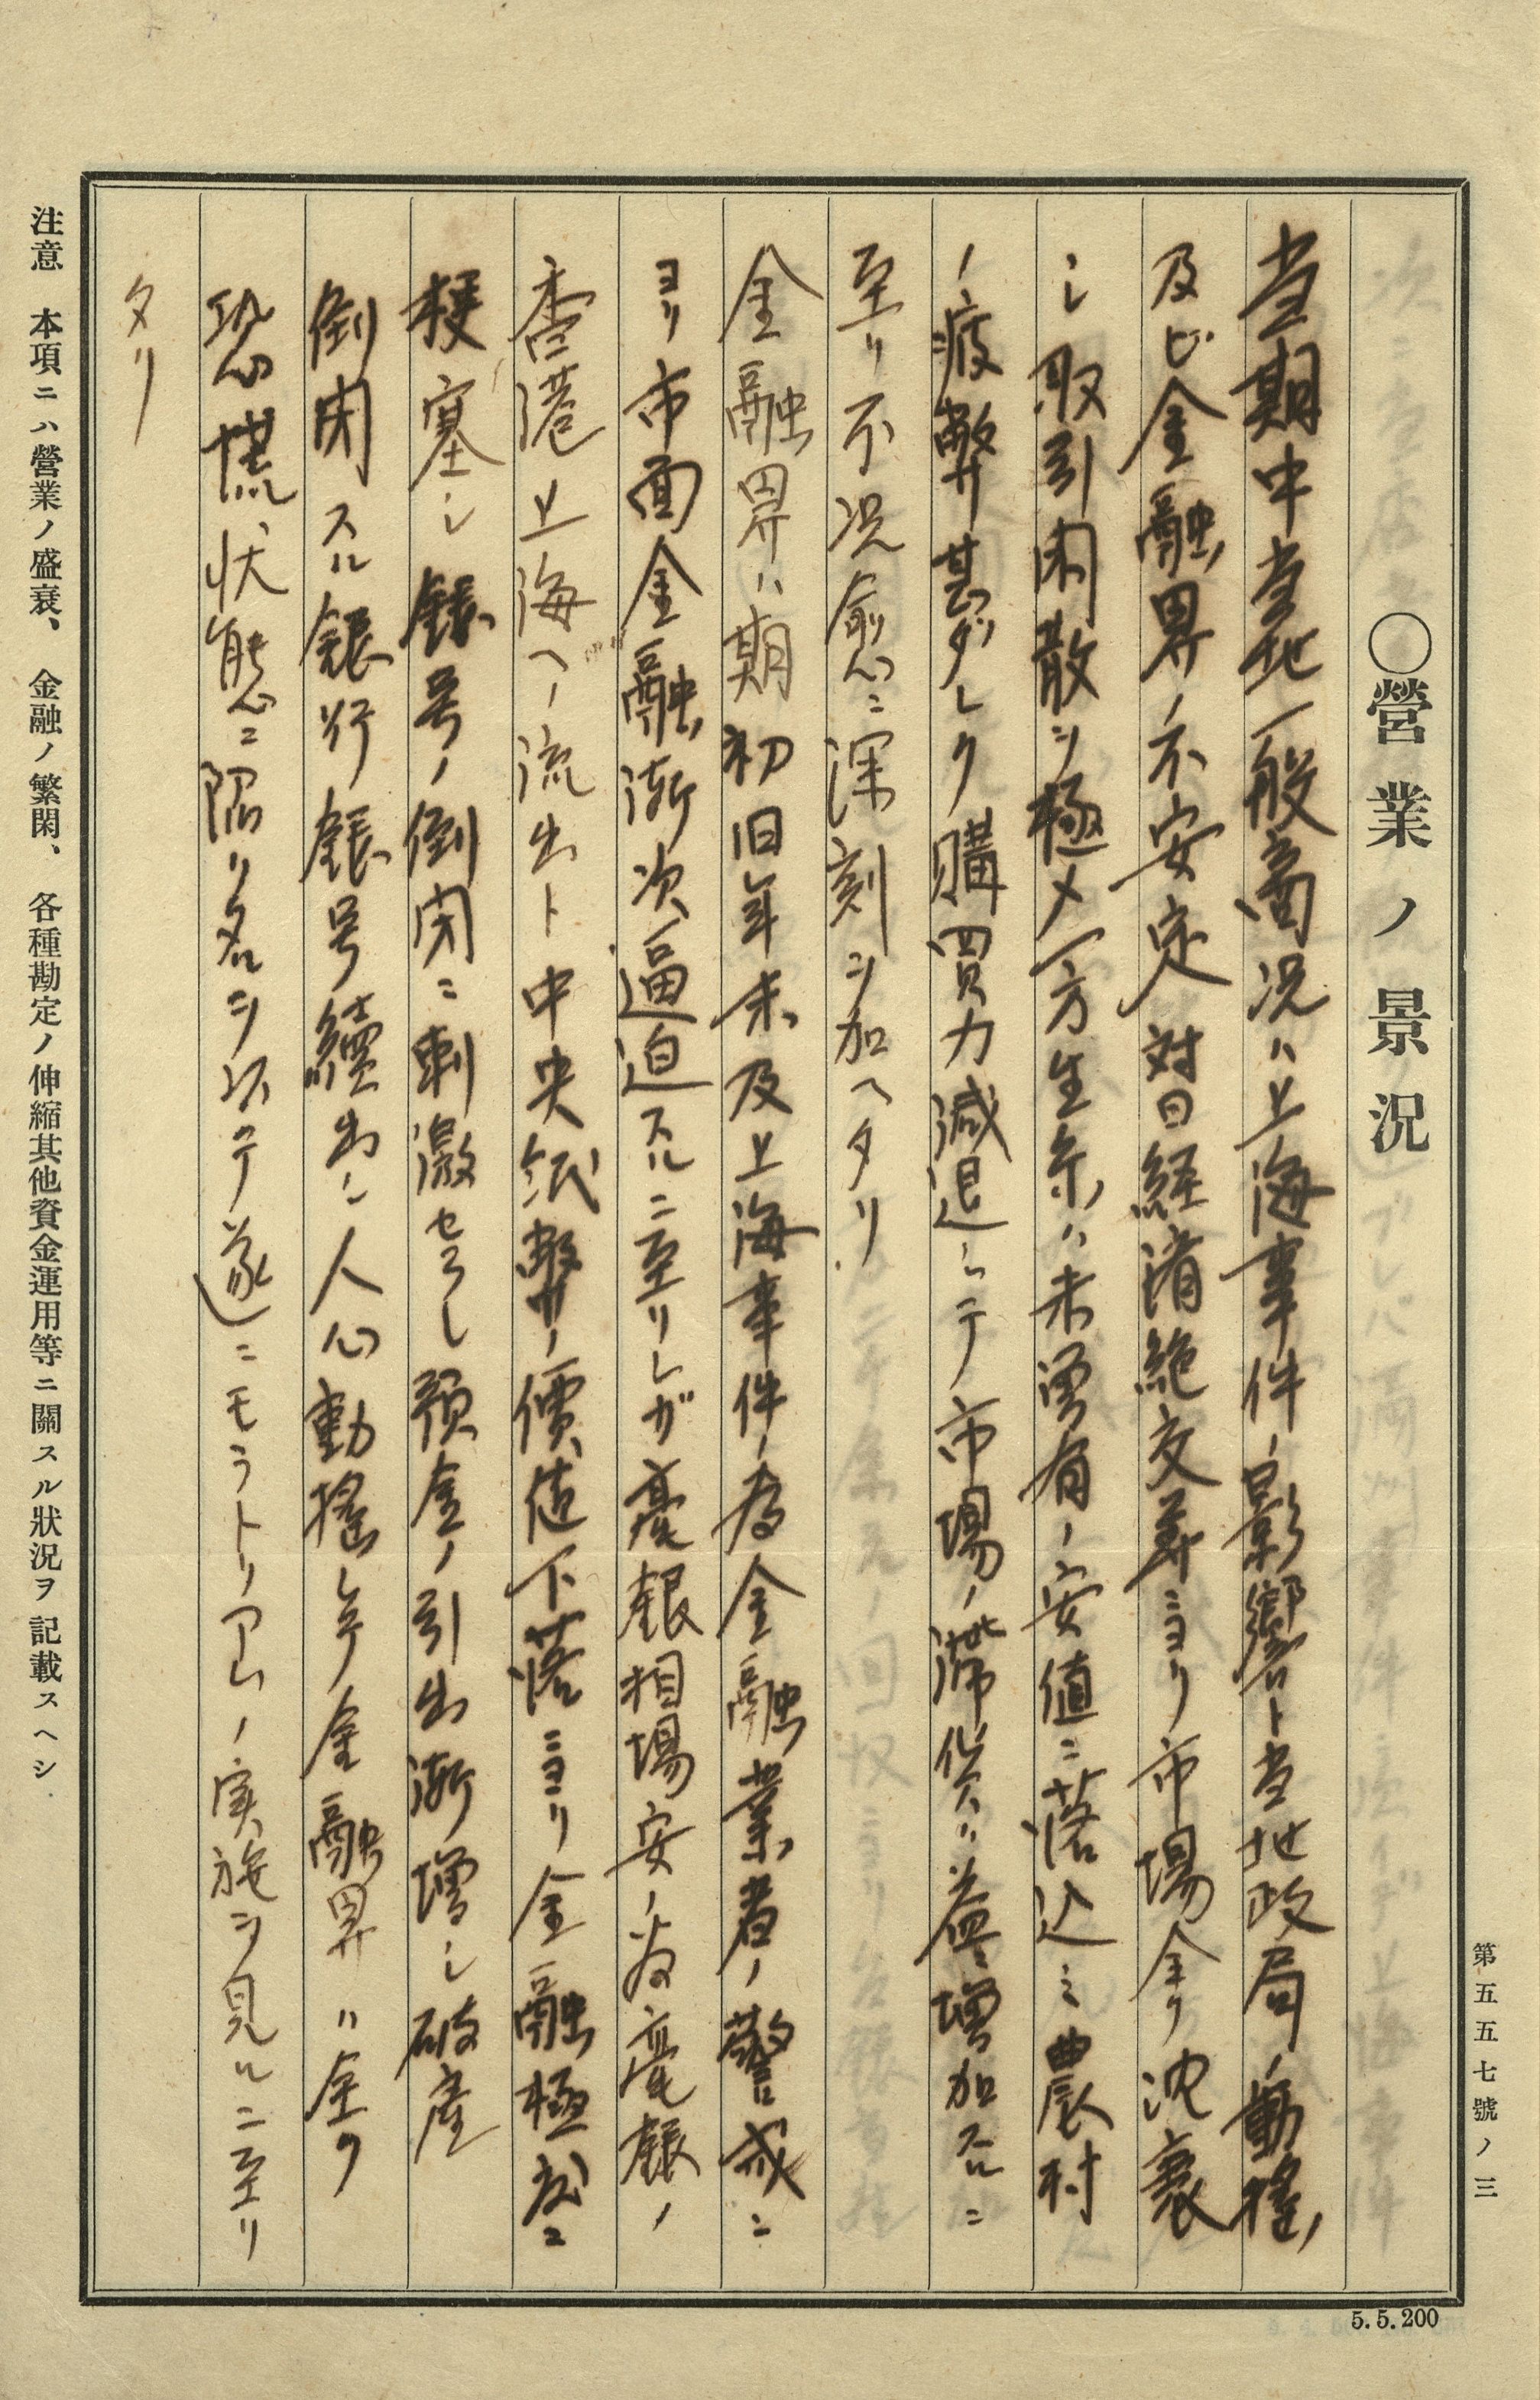 第五五七號ノ三
○營業ノ景況
当期中当地一般商況ハ上海事件ノ影響ト当地政局ノ動揺
及ビ金融界ノ不安定対日経済絶交等ニヨリ市場全ク沈衰
シ取引閑散ヲ極メ一方生糸ハ未曽有ノ安値ニ落込ミ農村
ノ疲弊甚ダシク購買力減退シテ市場ノ滞貨ハ益々増加スルニ
至リ不況愈々深刻ヲ加ヘタリ
金融界ハ期初旧年末及上海事件ノ為金融業者ノ警戒ニ
ヨリ市面金融漸次逼迫スルニ至リシガ毫銀相場安ノ為毫銀ノ
香港上海ヘノ流出ト中央紙幣ノ價値下落ニヨリ金融極度ニ
梗塞シ銀号ノ倒閉ニ刺激セラレ預金ノ引出漸増シ破産
倒閉スル銀行銀号續出シ人心動揺シ今ヤ金融界ハ全ク
恐慌状態ニ陥リタルヲ以テ遂ニモラトリアムノ実施ヲ見ルニ至リ
タリ
注意 本項ニハ營業ノ盛衰、金融ノ繁閑、各種勘定ノ伸縮其他資金運用等ニ關スル狀況ヲ記載スヘシ
5.5.200